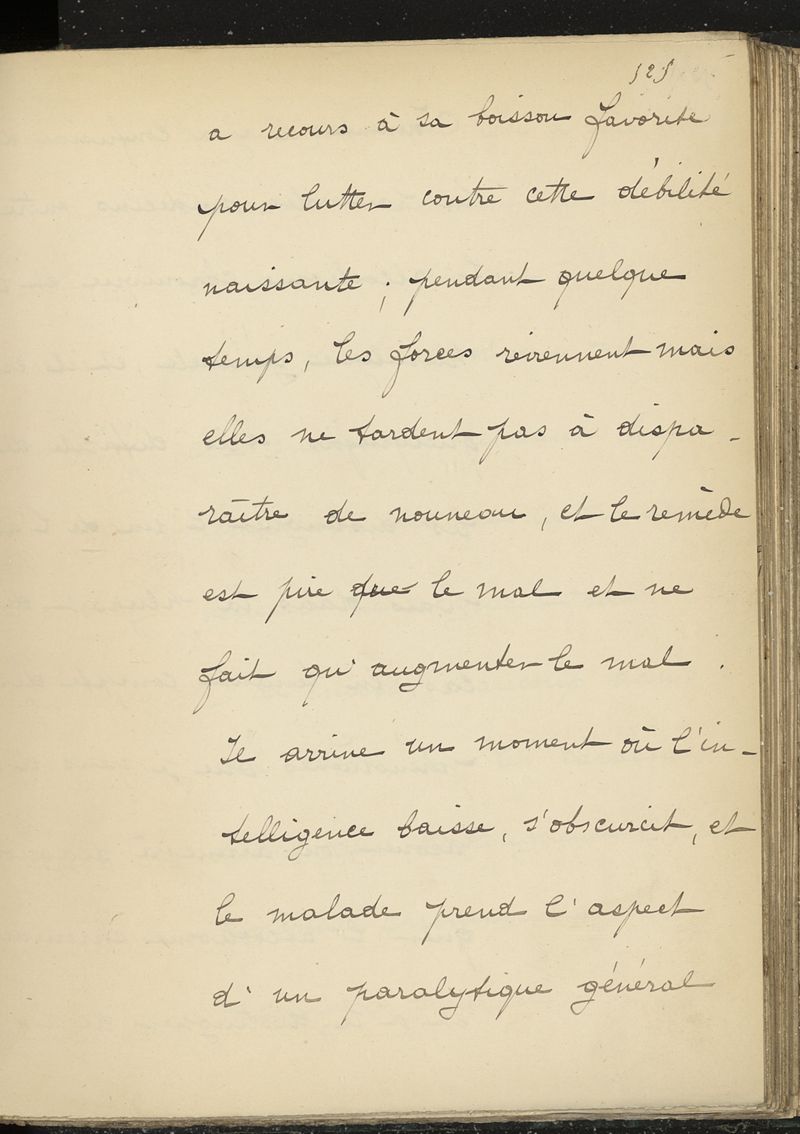 525
a recours à sa boisson favorite
pour lutter contre cette débilité
naissante ; pendant quelque
temps, les forces reviennent mais
elles ne tardent pas à dispa-
raître de nouveau, et le remède
est pire que le mal et ne
fait qu'augmenter le mal.
Il arrive un moment où l'in-
telligence baisse, s'obscurcit, et
le malade prend l'aspect
d'un paralytique général